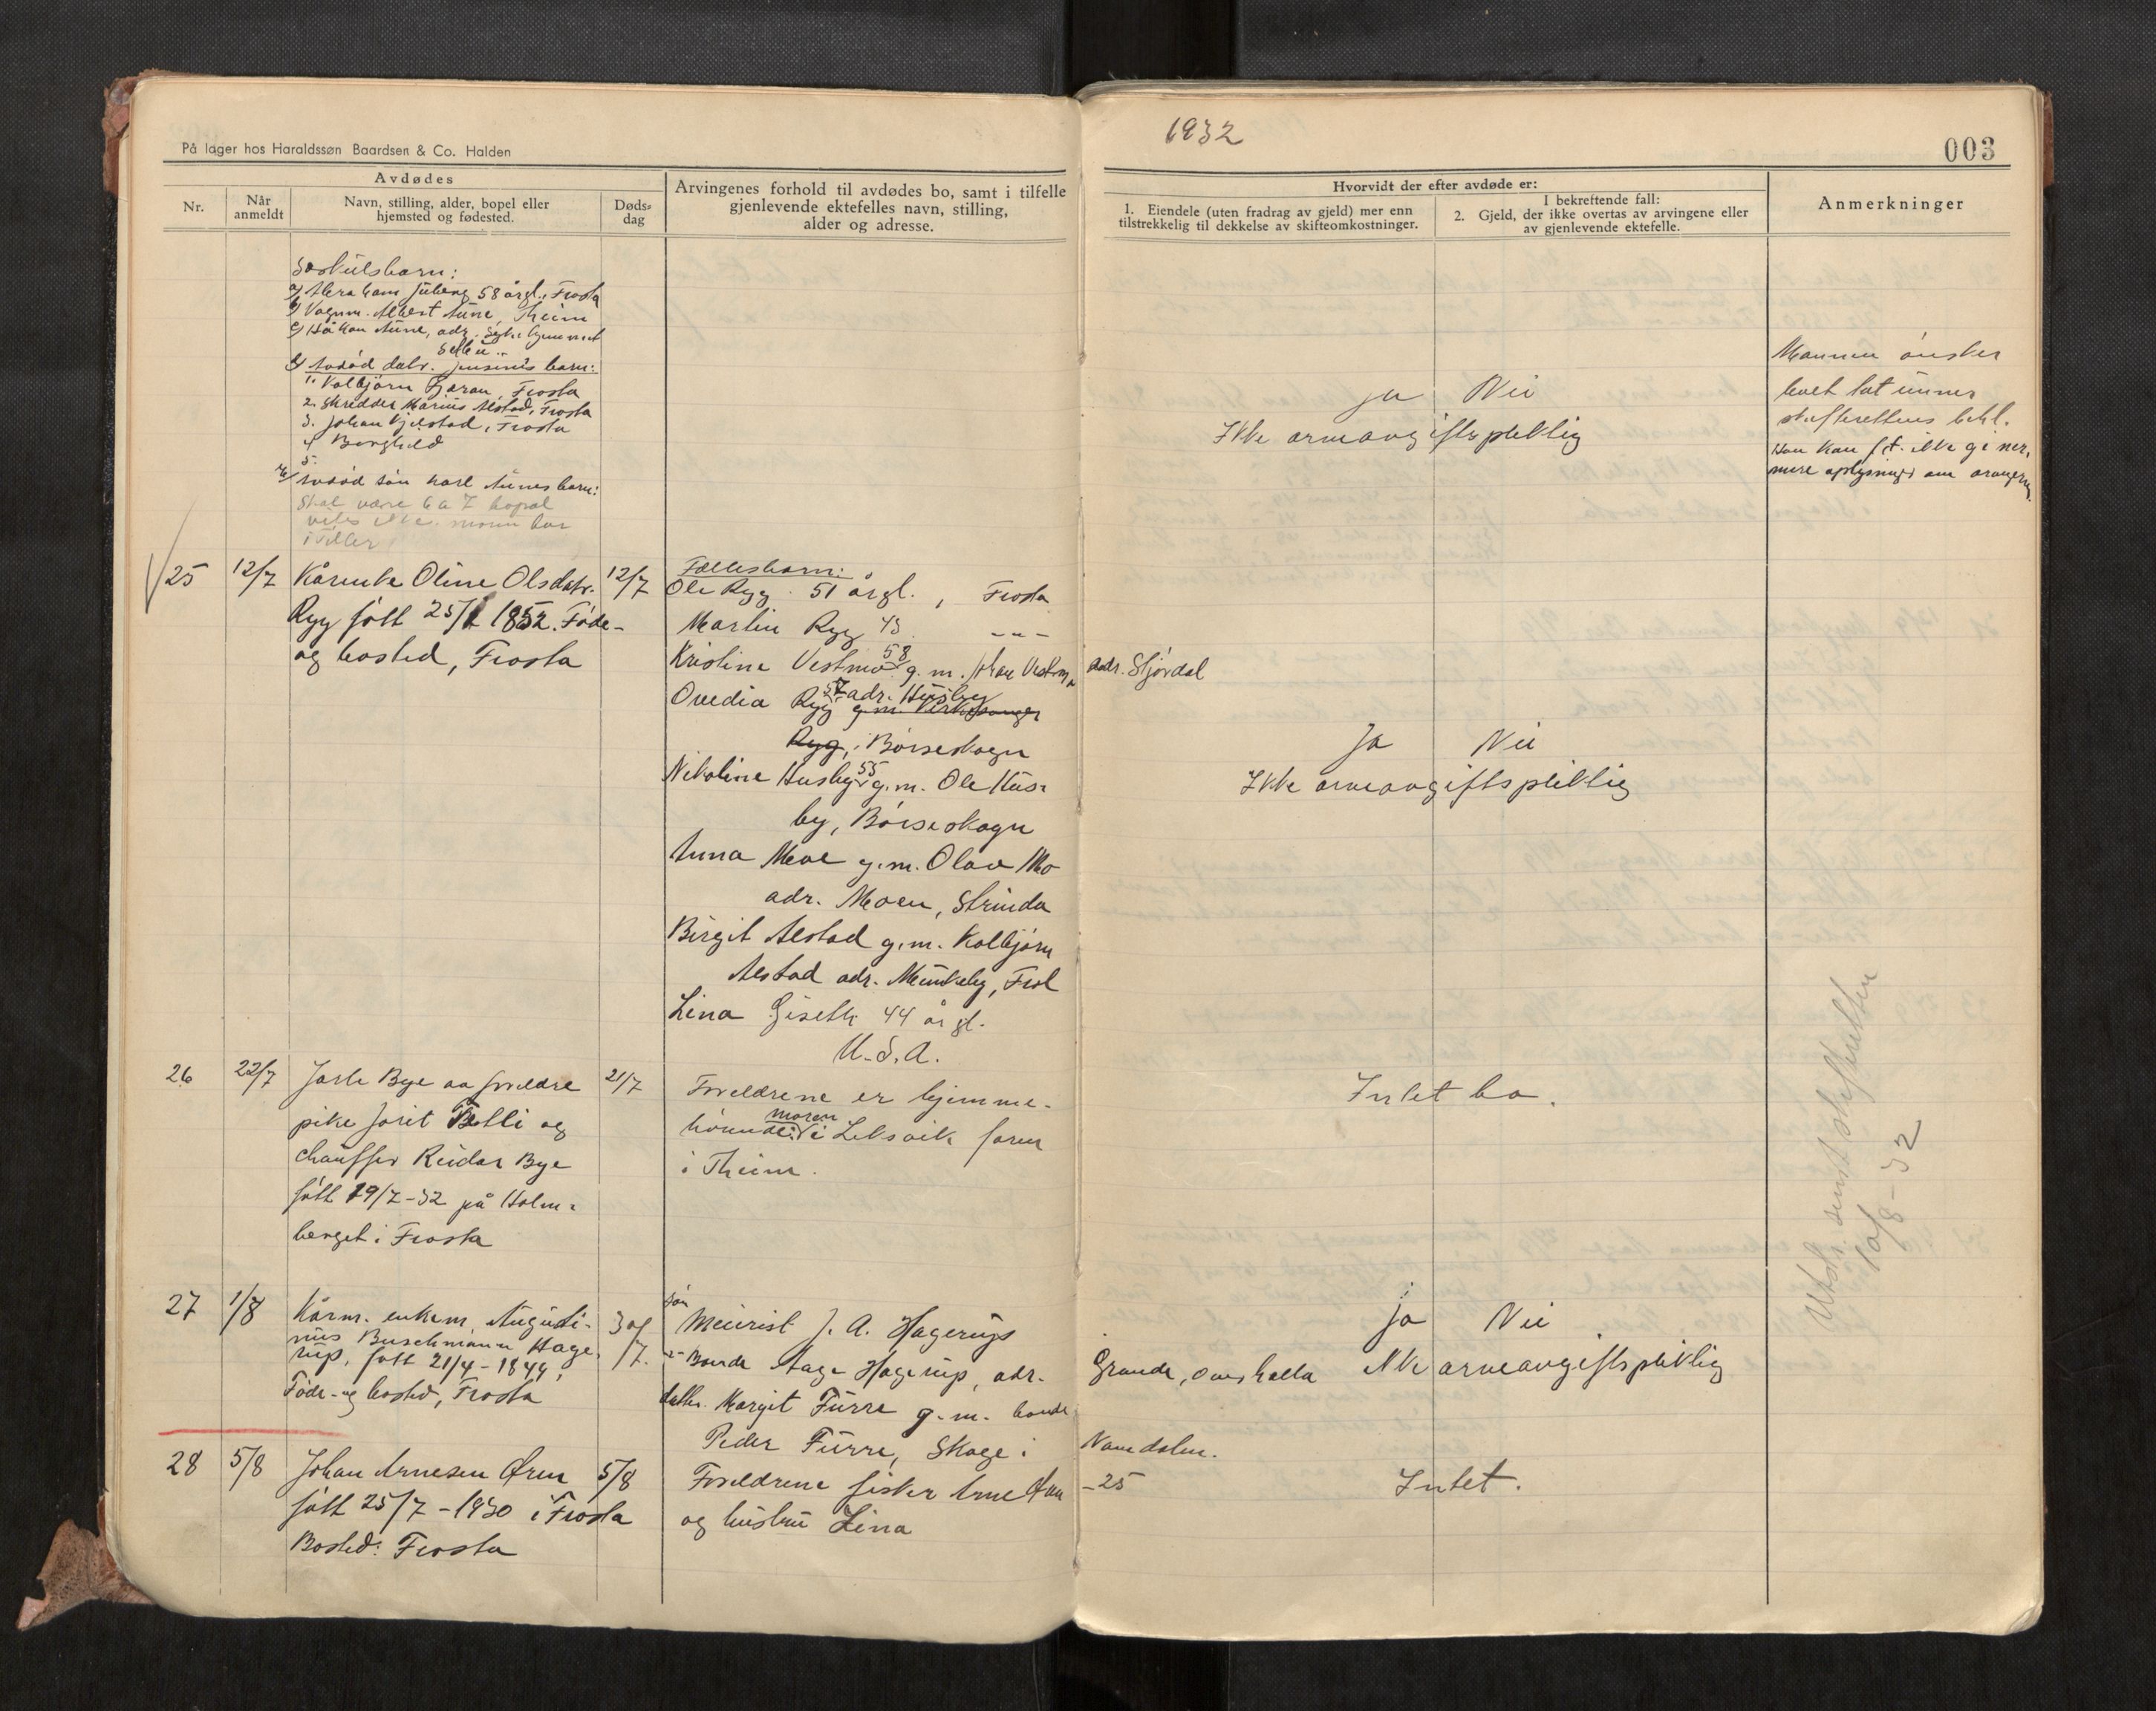 1932
003
På lager hos Haraldssøn Baardsen & Co. Halden
Avdødes
Nr.
Når anmeldt
Navn, stilling, alder, bopel eller hjemsted og fødested.
Døds-dag
Arvingenes forhold til avdødes bo, samt i tilfelle
gjenlevende ektefelles navn, stilling,
alder og adresse.
Hvorvidt der efter avdøde er:
1. Eiendele (uten fradrag av gjeld) mer enn
tilstrekkelig til dekkelse av skifteomkostninger.
I bekreftende fall:
2. Gjeld, der ikke overtas av arvingene eller
av gjenlevende ektefelle.
Anmerkninger
Søskilsbarn:
a) Abraham 58 årgl., Frosta
b) Vognm. Albert Aune, Theim
c) Håkon Aune, adr.
Selbu
d) Avdød datr. Jensines barn:
1. Kolbjørn Frosta
2. Skredder Marius Alstad, Frosta
3. Johan Frosta
4 Borghild
5.
e) avdød søn Karl Aunes barn:
Skal være 6 a 7 bopæl
vites ikke. bor
i Tiller
Ja Nei
Ikke arveavgiftspliktig
Mannen ønsker
boet tat under
skifterettens behl.
Han kan f.t. ikke gi nær-
mere oplysninger om arvingene.
25 12/7 Kårenke Oline Olsdatr. 12/7
Ryg født 25/1 1852. Føde-
og bosted, Frosta
Fællesbarn:
Ole Ryg 51 årgl., Frosta
Martin Ryg 43 -"-
Kristine Vestmo 58 g.m. Johan Vestmo adr. Stjørdal
Ovedia Ryg 57 adr. Husby
g.m. Kirkesanger
Ryg, Børseskogn
Nikoline Husby 55 g.m. Ole Hus-
by, Børseskogn
Anna Moe g.m. Olav Mo
adr. Moen, Strinda
Birgit Alstad g.m. Kolbjørn
Alstad adr. Munkeby, Frol
Lina Giseth 44 årgl.
U.S.A.
Ja Nei
Ikke arveavgiftspliktig
26 22/7 Jarle Bye av foreldre 21/7
pike Jorit Betli og
chauffør Reidar Bye
født 19/7-32 på Holm-
berget i Frosta
Foreldrene er hjemme-
hørende: moren i Leksvik faren
i Theim.
Intet bo.
Utst. sendt skifteretten
10/8-32
27 1/8 Kårm. enkem. Augusti- 30/7.
nus Buschmann Hage-
rup, født 21/4-1849,
Føde- og bosted, Frosta
søn Meierist J. A. Hagerup
"- Bonde Aage Hagerup, adr. Grande, Overhalla
datter. Margit Furre g.m. bonde
Peder Furre, Skage i Namdalen.
Ja Nei
Ikke arveavgiftspliktig
28 5/8 Johan Arnesen Øren 5/8
født 25/7-1930 i Frosta
Bosted: Frosta
Foreldrene fisker Arne Øren -25
og hustru Lina
Intet.